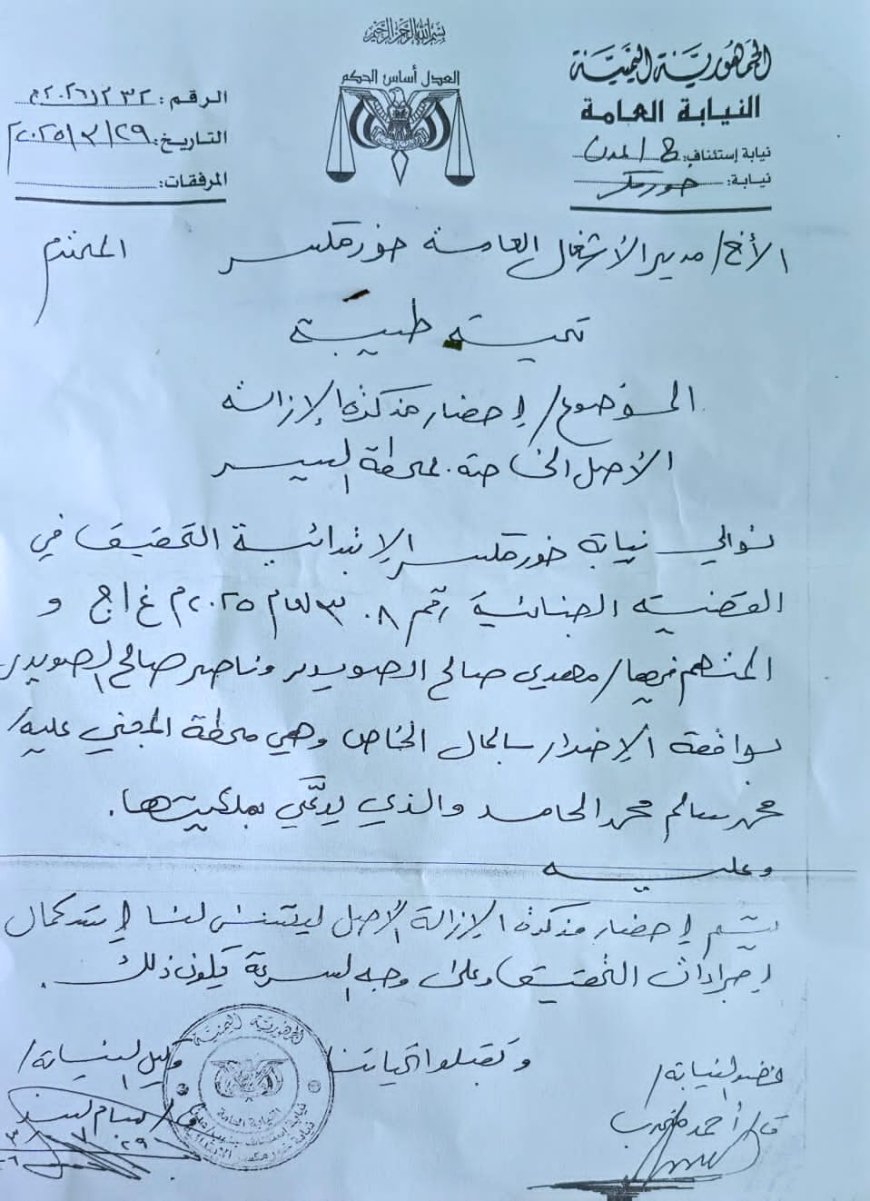 بسم الله الرحمن الرحيم
الجمهورية اليمنية
النيابة العامة
نيابة إستئناف:
نيابة: خورمكسر
العدل أساس الحكم
الرقم:
التاريخ: ٢٠٢٥/٣/٢٩م
المرفقات:
الأخ/ مدير الأشغال العامة خورمكسر المحترم
تحية طيبة
الموضوع/ إحضار مذكرة الإزالة
الأصل الخاصة بمحطة السير
توالي نيابة خورمكسر الإبتدائية التحقيق في
القضية الجنائية رقم ٣٠٨ لعام ٢٠٢٥م غ/ج و
المتهم فيها/ مهدي صالح الصويدر وناصر صالح الصويدر
بواقعة الإضرار بالمال الخاص وهي محطة المجني عليه/
محمد سالم محمد الحامد والذي يدّعي بملكيتها.
وعليه
يتم إحضار مذكرة الإزالة الأصل ليتسنى لنا إستكمال
إجراءات التحقيق وعلى وجه السرعة يكون ذلك.
وتقبلوا تحياتنا
عضو النيابة/
ق/ أحمد
وكيل النيابة/
ق/
الجمهورية اليمنية
النيابة العامة